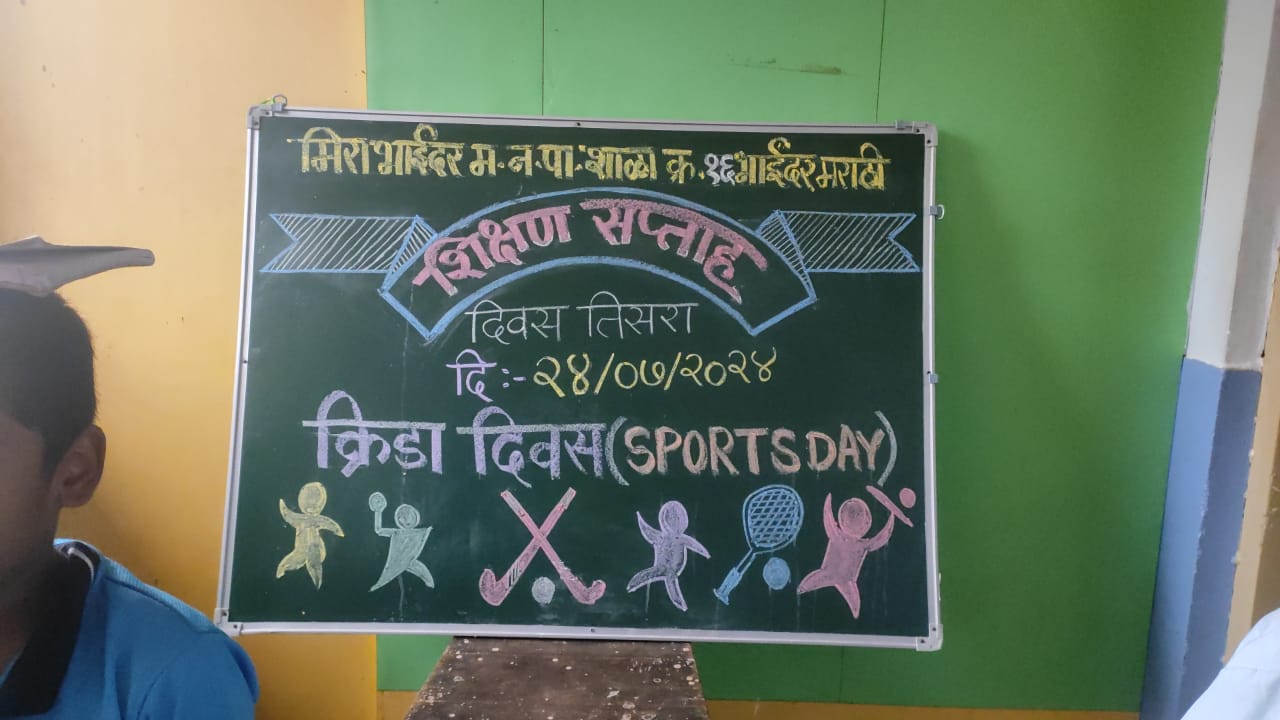 मिरा भाईंदर म.न.पा.शाळा क्र.१६ भाईंदर मराठी
शिक्षण सप्ताह
दिवस तिसरा
दि:-२४/०७/२०२४
क्रिडा दिवस(SPORTS DAY)